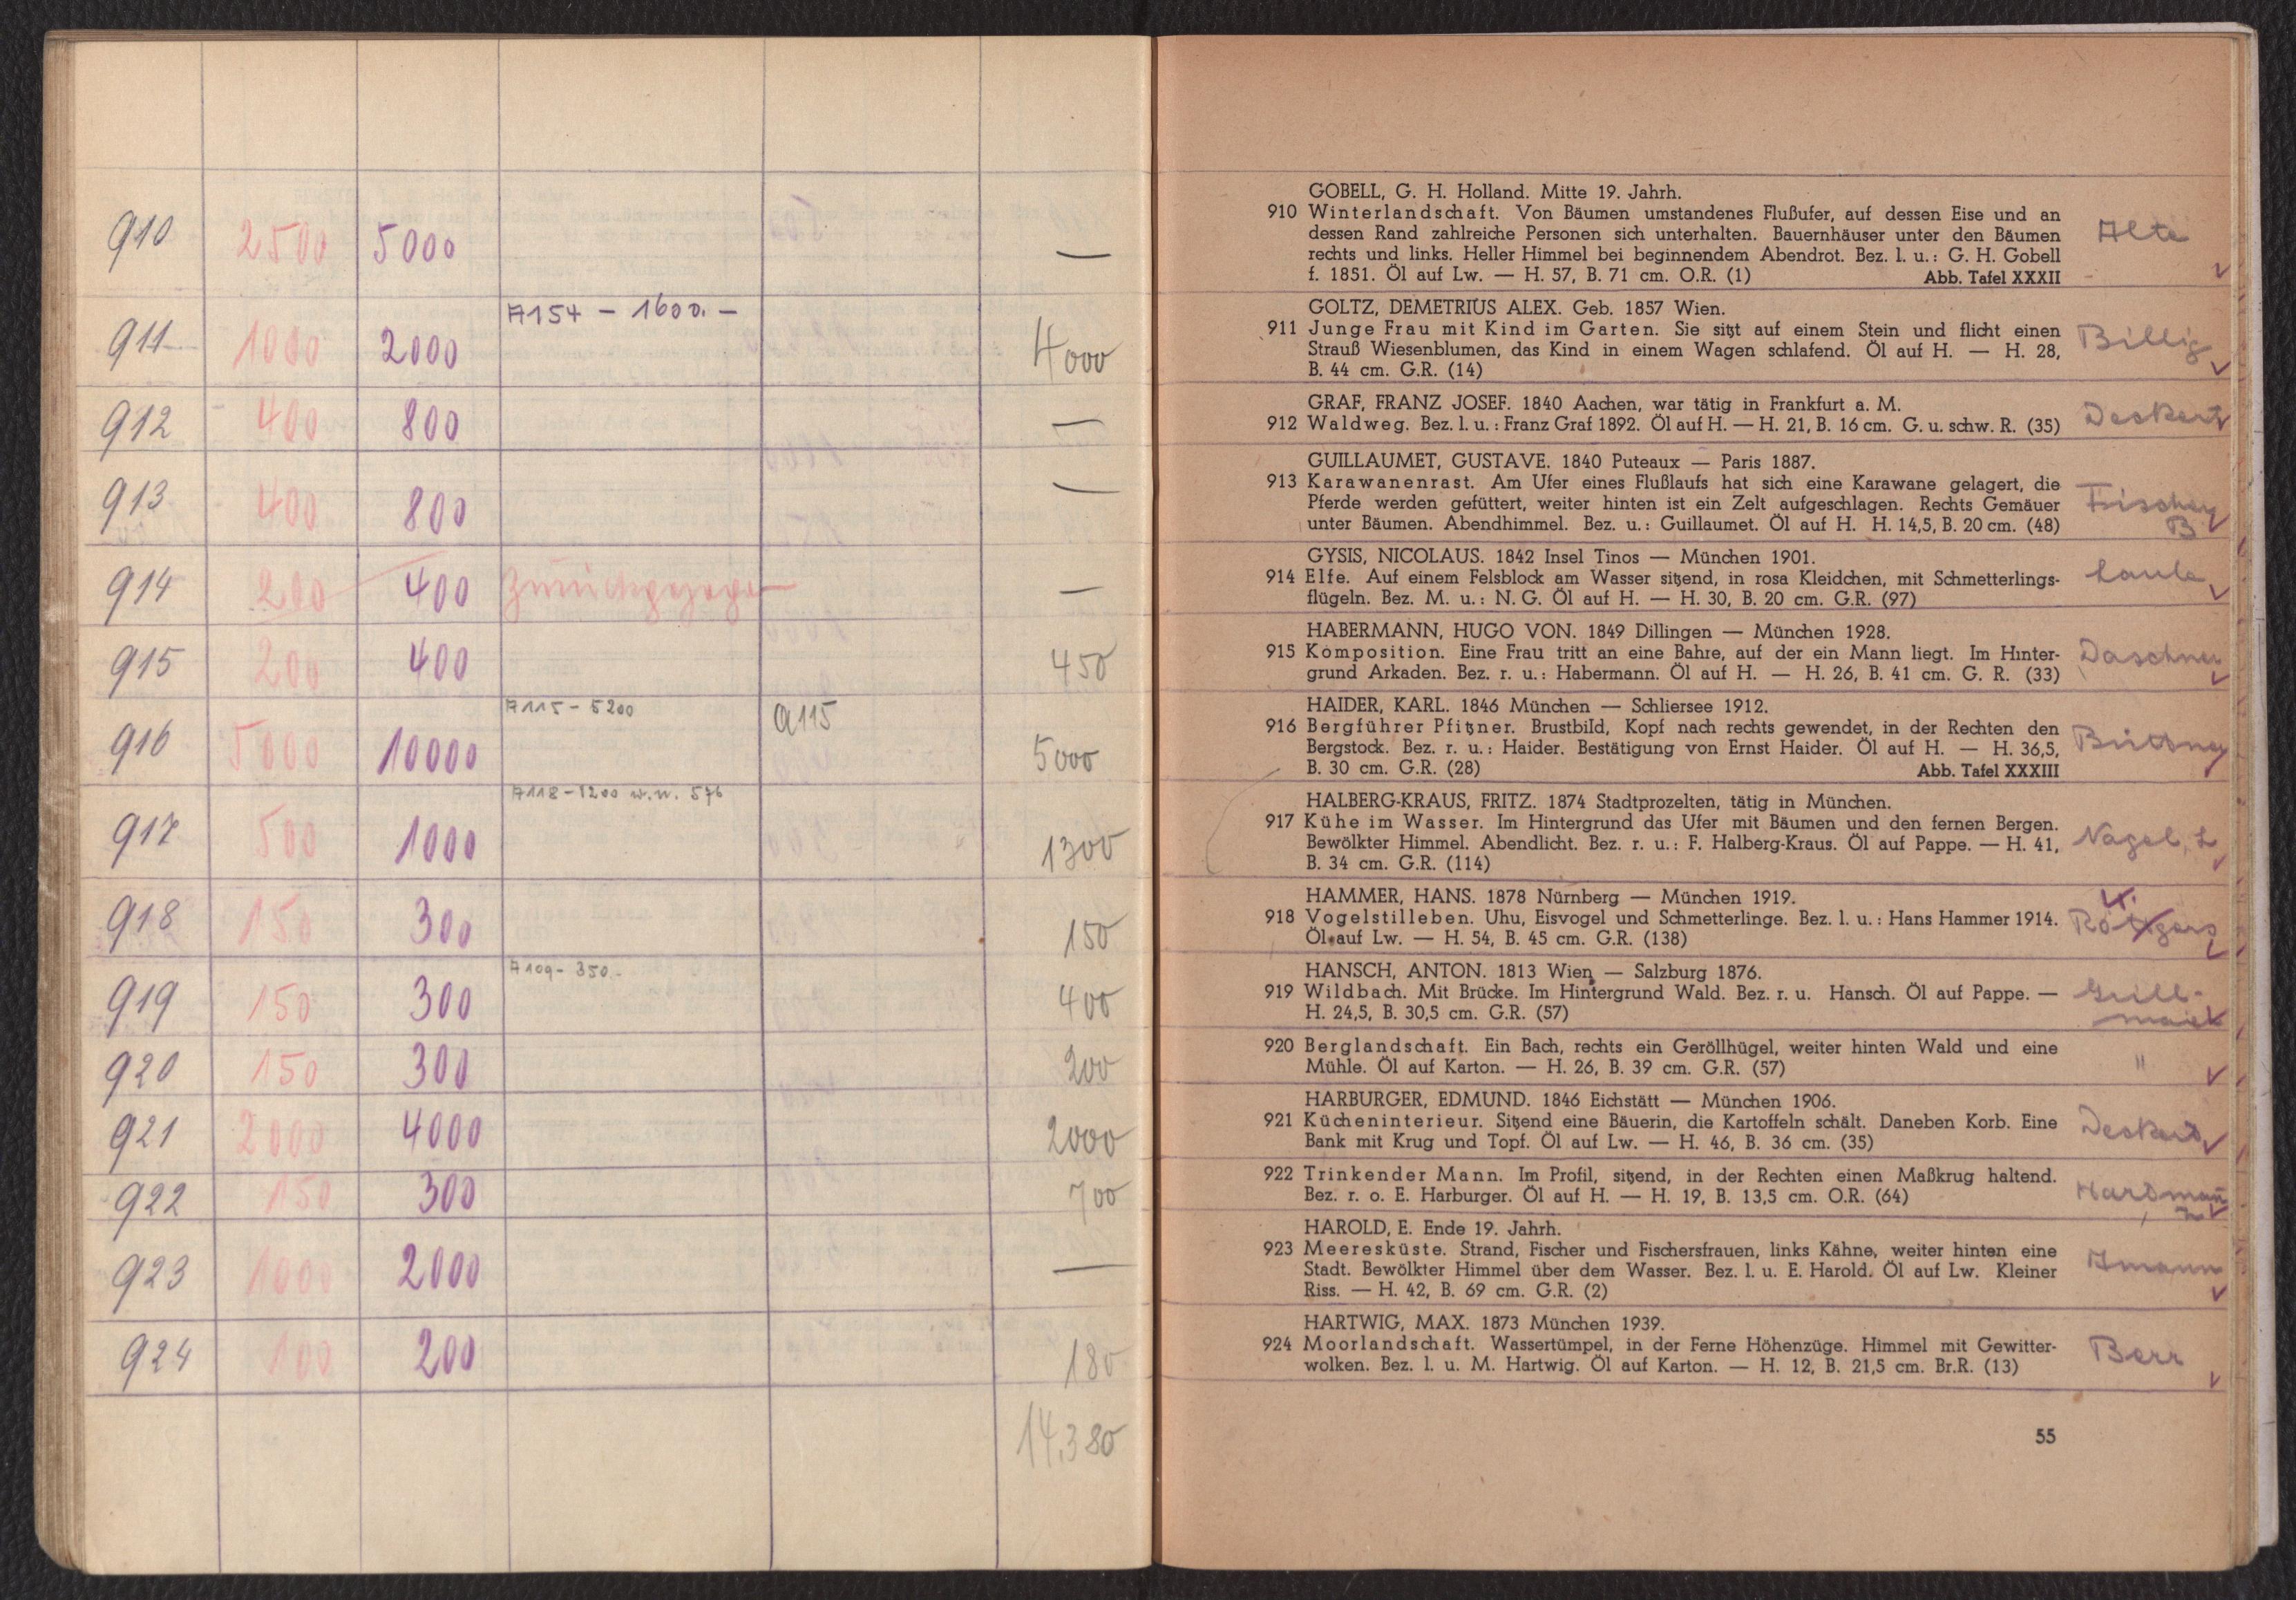 910 2500 5000 —
A154 – 1600.–
911 1000 2000 4000
912 400 800 —
913 400 800 —
914 200 400 Zurückgezogen —
915 200 400 450
A115 – 5200 A115
916 5000 10000 5000
A118 – 1200 w.n. 576
917 500 1000 1300
918 150 300 150
A109 – 350.–
919 150 300 400
920 150 300 200
921 2000 4000 2000
922 150 300 700
923 1000 2000 —
924 100 200 180
14.380
GOBELL, G. H. Holland. Mitte 19. Jahrh.
910 Winterlandschaft. Von Bäumen umstandenes Flußufer, auf dessen Eise und an
dessen Rand zahlreiche Personen sich unterhalten. Bauernhäuser unter den Bäumen
rechts und links. Heller Himmel bei beginnendem Abendrot. Bez. l. u.: G. H. Gobell
f. 1851. Öl auf Lw. — H. 57, B. 71 cm. O.R. (1) Abb. Tafel XXXII
Alte
GOLTZ, DEMETRIUS ALEX. Geb. 1857 Wien.
911 Junge Frau mit Kind im Garten. Sie sitzt auf einem Stein und flicht einen
Strauß Wiesenblumen, das Kind in einem Wagen schlafend. Öl auf H. — H. 28,
B. 44 cm. G.R. (14)
Billig
GRAF, FRANZ JOSEF. 1840 Aachen, war tätig in Frankfurt a. M.
912 Waldweg. Bez. l. u.: Franz Graf 1892. Öl auf H. — H. 21, B. 16 cm. G. u. schw. R. (35)
Deskart
GUILLAUMET, GUSTAVE. 1840 Puteaux — Paris 1887.
913 Karawanenrast. Am Ufer eines Flußlaufs hat sich eine Karawane gelagert, die
Pferde werden gefüttert, weiter hinten ist ein Zelt aufgeschlagen. Rechts Gemäuer
unter Bäumen. Abendhimmel. Bez. u.: Guillaumet. Öl auf H. H. 14,5, B. 20 cm. (48)
Fischer
B
GYSIS, NICOLAUS. 1842 Insel Tinos — München 1901.
914 Elfe. Auf einem Felsblock am Wasser sitzend, in rosa Kleidchen, mit Schmetterlings-
flügeln. Bez. M. u.: N. G. Öl auf H. — H. 30, B. 20 cm. G.R. (97)
HABERMANN, HUGO VON. 1849 Dillingen — München 1928.
915 Komposition. Eine Frau tritt an eine Bahre, auf der ein Mann liegt. Im Hinter-
grund Arkaden. Bez. r. u.: Habermann. Öl auf H. — H. 26, B. 41 cm. G. R. (33)
Daschner
HAIDER, KARL. 1846 München — Schliersee 1912.
916 Bergführer Pfitzner. Brustbild, Kopf nach rechts gewendet, in der Rechten den
Bergstock. Bez. r. u.: Haider. Bestätigung von Ernst Haider. Öl auf H. — H. 36,5,
B. 30 cm. G.R. (28) Abb. Tafel XXXIII
Büttner
HALBERG-KRAUS, FRITZ. 1874 Stadtprozelten, tätig in München.
917 Kühe im Wasser. Im Hintergrund das Ufer mit Bäumen und den fernen Bergen.
Bewölkter Himmel. Abendlicht. Bez. r. u.: F. Halberg-Kraus. Öl auf Pappe. — H. 41,
B. 34 cm. G.R. (114)
Nagel, L
HAMMER, HANS. 1878 Nürnberg — München 1919.
918 Vogelstilleben. Uhu, Eisvogel und Schmetterlinge. Bez. l. u.: Hans Hammer 1914.
Öl auf Lw. — H. 54, B. 45 cm. G.R. (138)
Röttgers
HANSCH, ANTON. 1813 Wien — Salzburg 1876.
919 Wildbach. Mit Brücke. Im Hintergrund Wald. Bez. r. u. Hansch. Öl auf Pappe. —
H. 24,5, B. 30,5 cm. G.R. (57)
Grill-
maier
920 Berglandschaft. Ein Bach, rechts ein Geröllhügel, weiter hinten Wald und eine
Mühle. Öl auf Karton. — H. 26, B. 39 cm. G.R. (57)
"
HARBURGER, EDMUND. 1846 Eichstätt — München 1906.
921 Kücheninterieur. Sitzend eine Bäuerin, die Kartoffeln schält. Daneben Korb. Eine
Bank mit Krug und Topf. Öl auf Lw. — H. 46, B. 36 cm. (35)
Deskart
922 Trinkender Mann. Im Profil, sitzend, in der Rechten einen Maßkrug haltend.
Bez. r. o. E. Harburger. Öl auf H. — H. 19, B. 13,5 cm. O.R. (64)
Hartmann
HAROLD, E. Ende 19. Jahrh.
923 Meeresküste. Strand, Fischer und Fischersfrauen, links Kähne, weiter hinten eine
Stadt. Bewölkter Himmel über dem Wasser. Bez. l. u. E. Harold. Öl auf Lw. Kleiner
Riss. — H. 42, B. 69 cm. G.R. (2)
HARTWIG, MAX. 1873 München 1939.
924 Moorlandschaft. Wassertümpel, in der Ferne Höhenzüge. Himmel mit Gewitter-
wolken. Bez. l. u. M. Hartwig. Öl auf Karton. — H. 12, B. 21,5 cm. Br.R. (13)
Berr
55